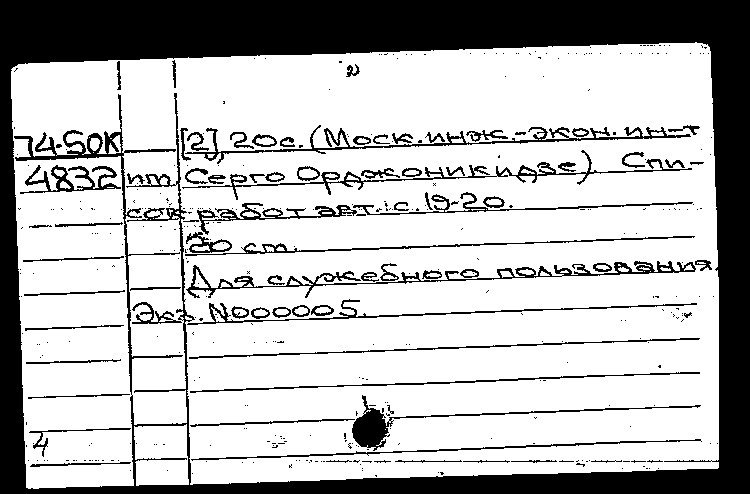 2)
74-50К [2], 20с. (Моск. инж.-экон. ин-т
4832 им. Серго Орджоникидзе). Спи-
сок работ авт.: с. 19-20.
20 см.
Для служебного пользования.
Экз. N000005.
4